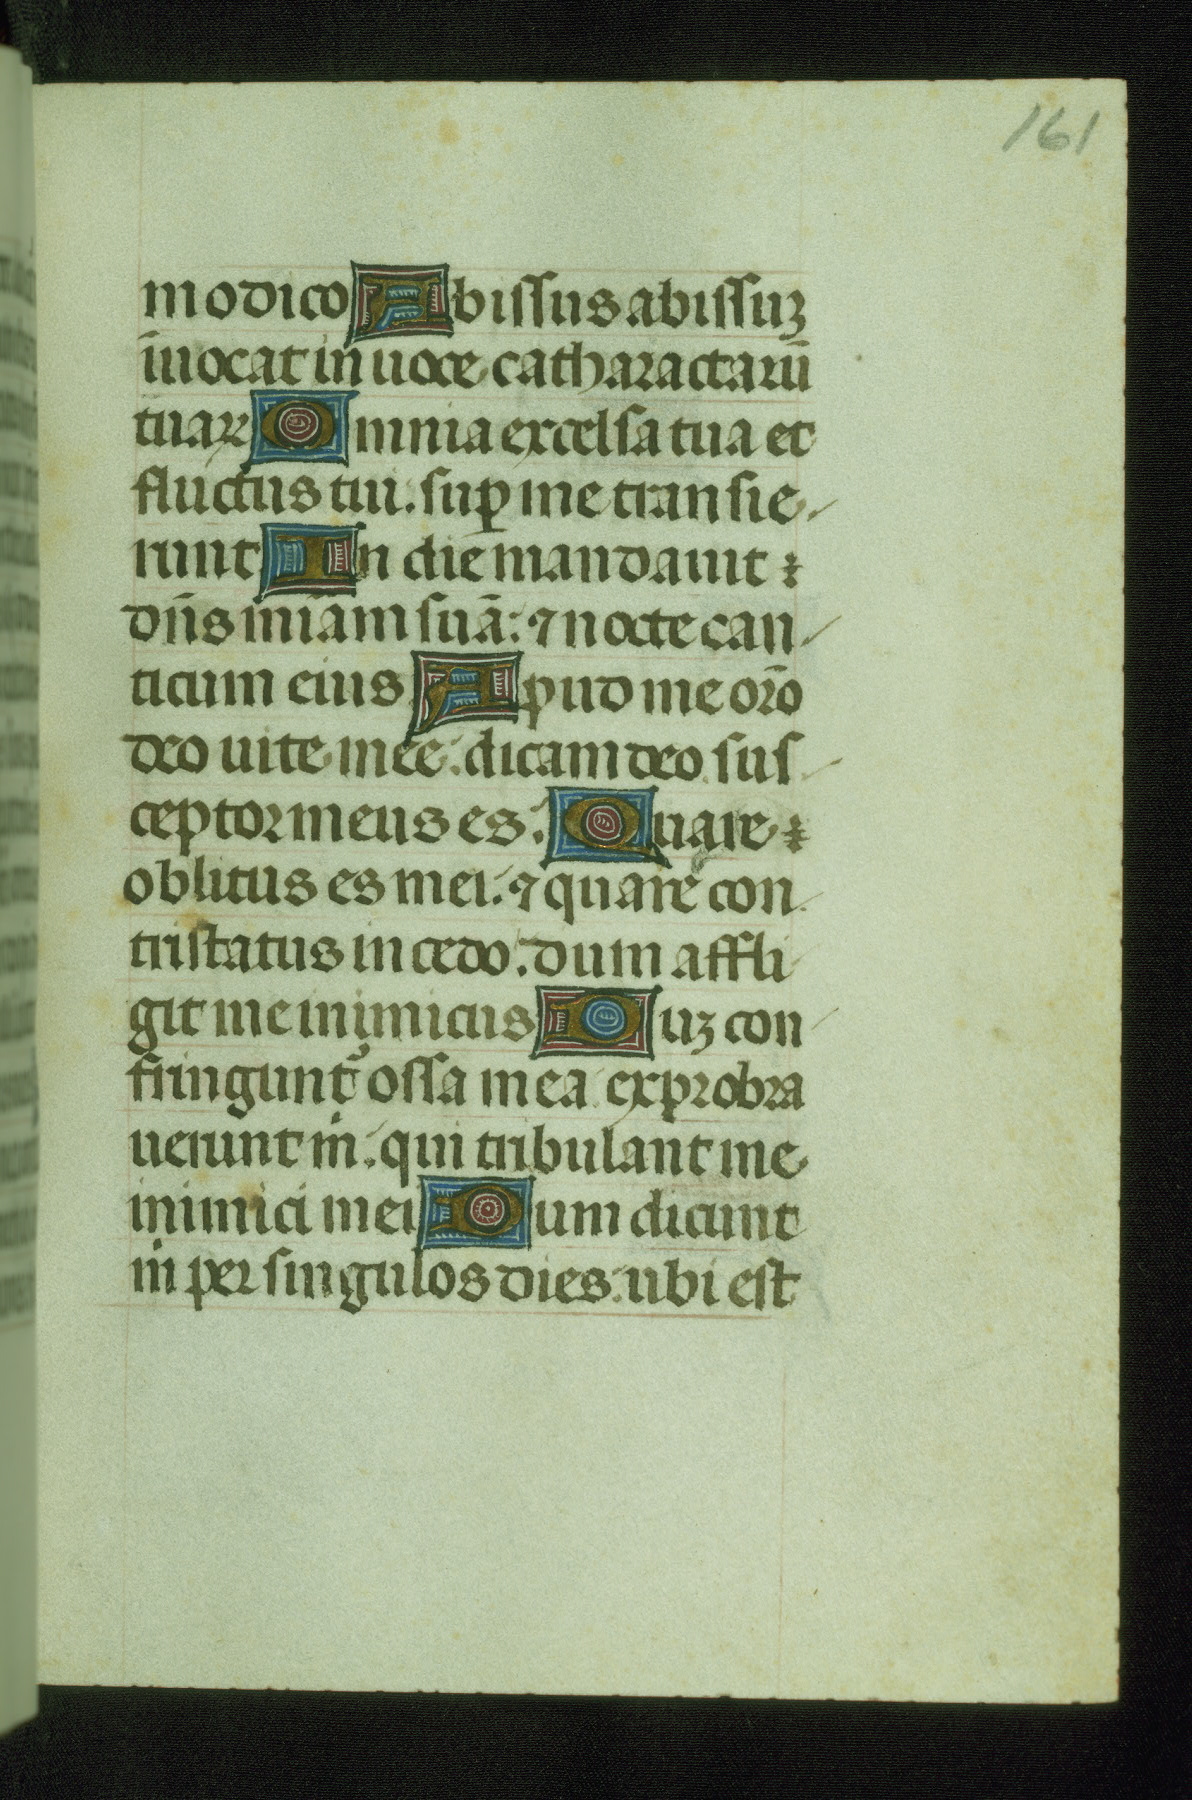 161
modico Abissus abissuꝫ
īuocat in uoce catharactarū
tuaꝝ Omnia excelsa tua et
fluctus tui. suꝑ me transie
runt In die mandauit
dn̄s miām suā: ⁊ nocte can
ticum eius Apud me or̄o
deo uite mee: dicam deo sus
ceptor meus es: Quare
oblitus es mei: ⁊ quare con
tristatus incedo: dum affli
git me inimicus Duꝫ con
fringunt᷑ ossa mea exprobra
uerunt m̍. qui tribulant me
inimici mei Dum dicunt
m̍ per singulos dies: ubi est